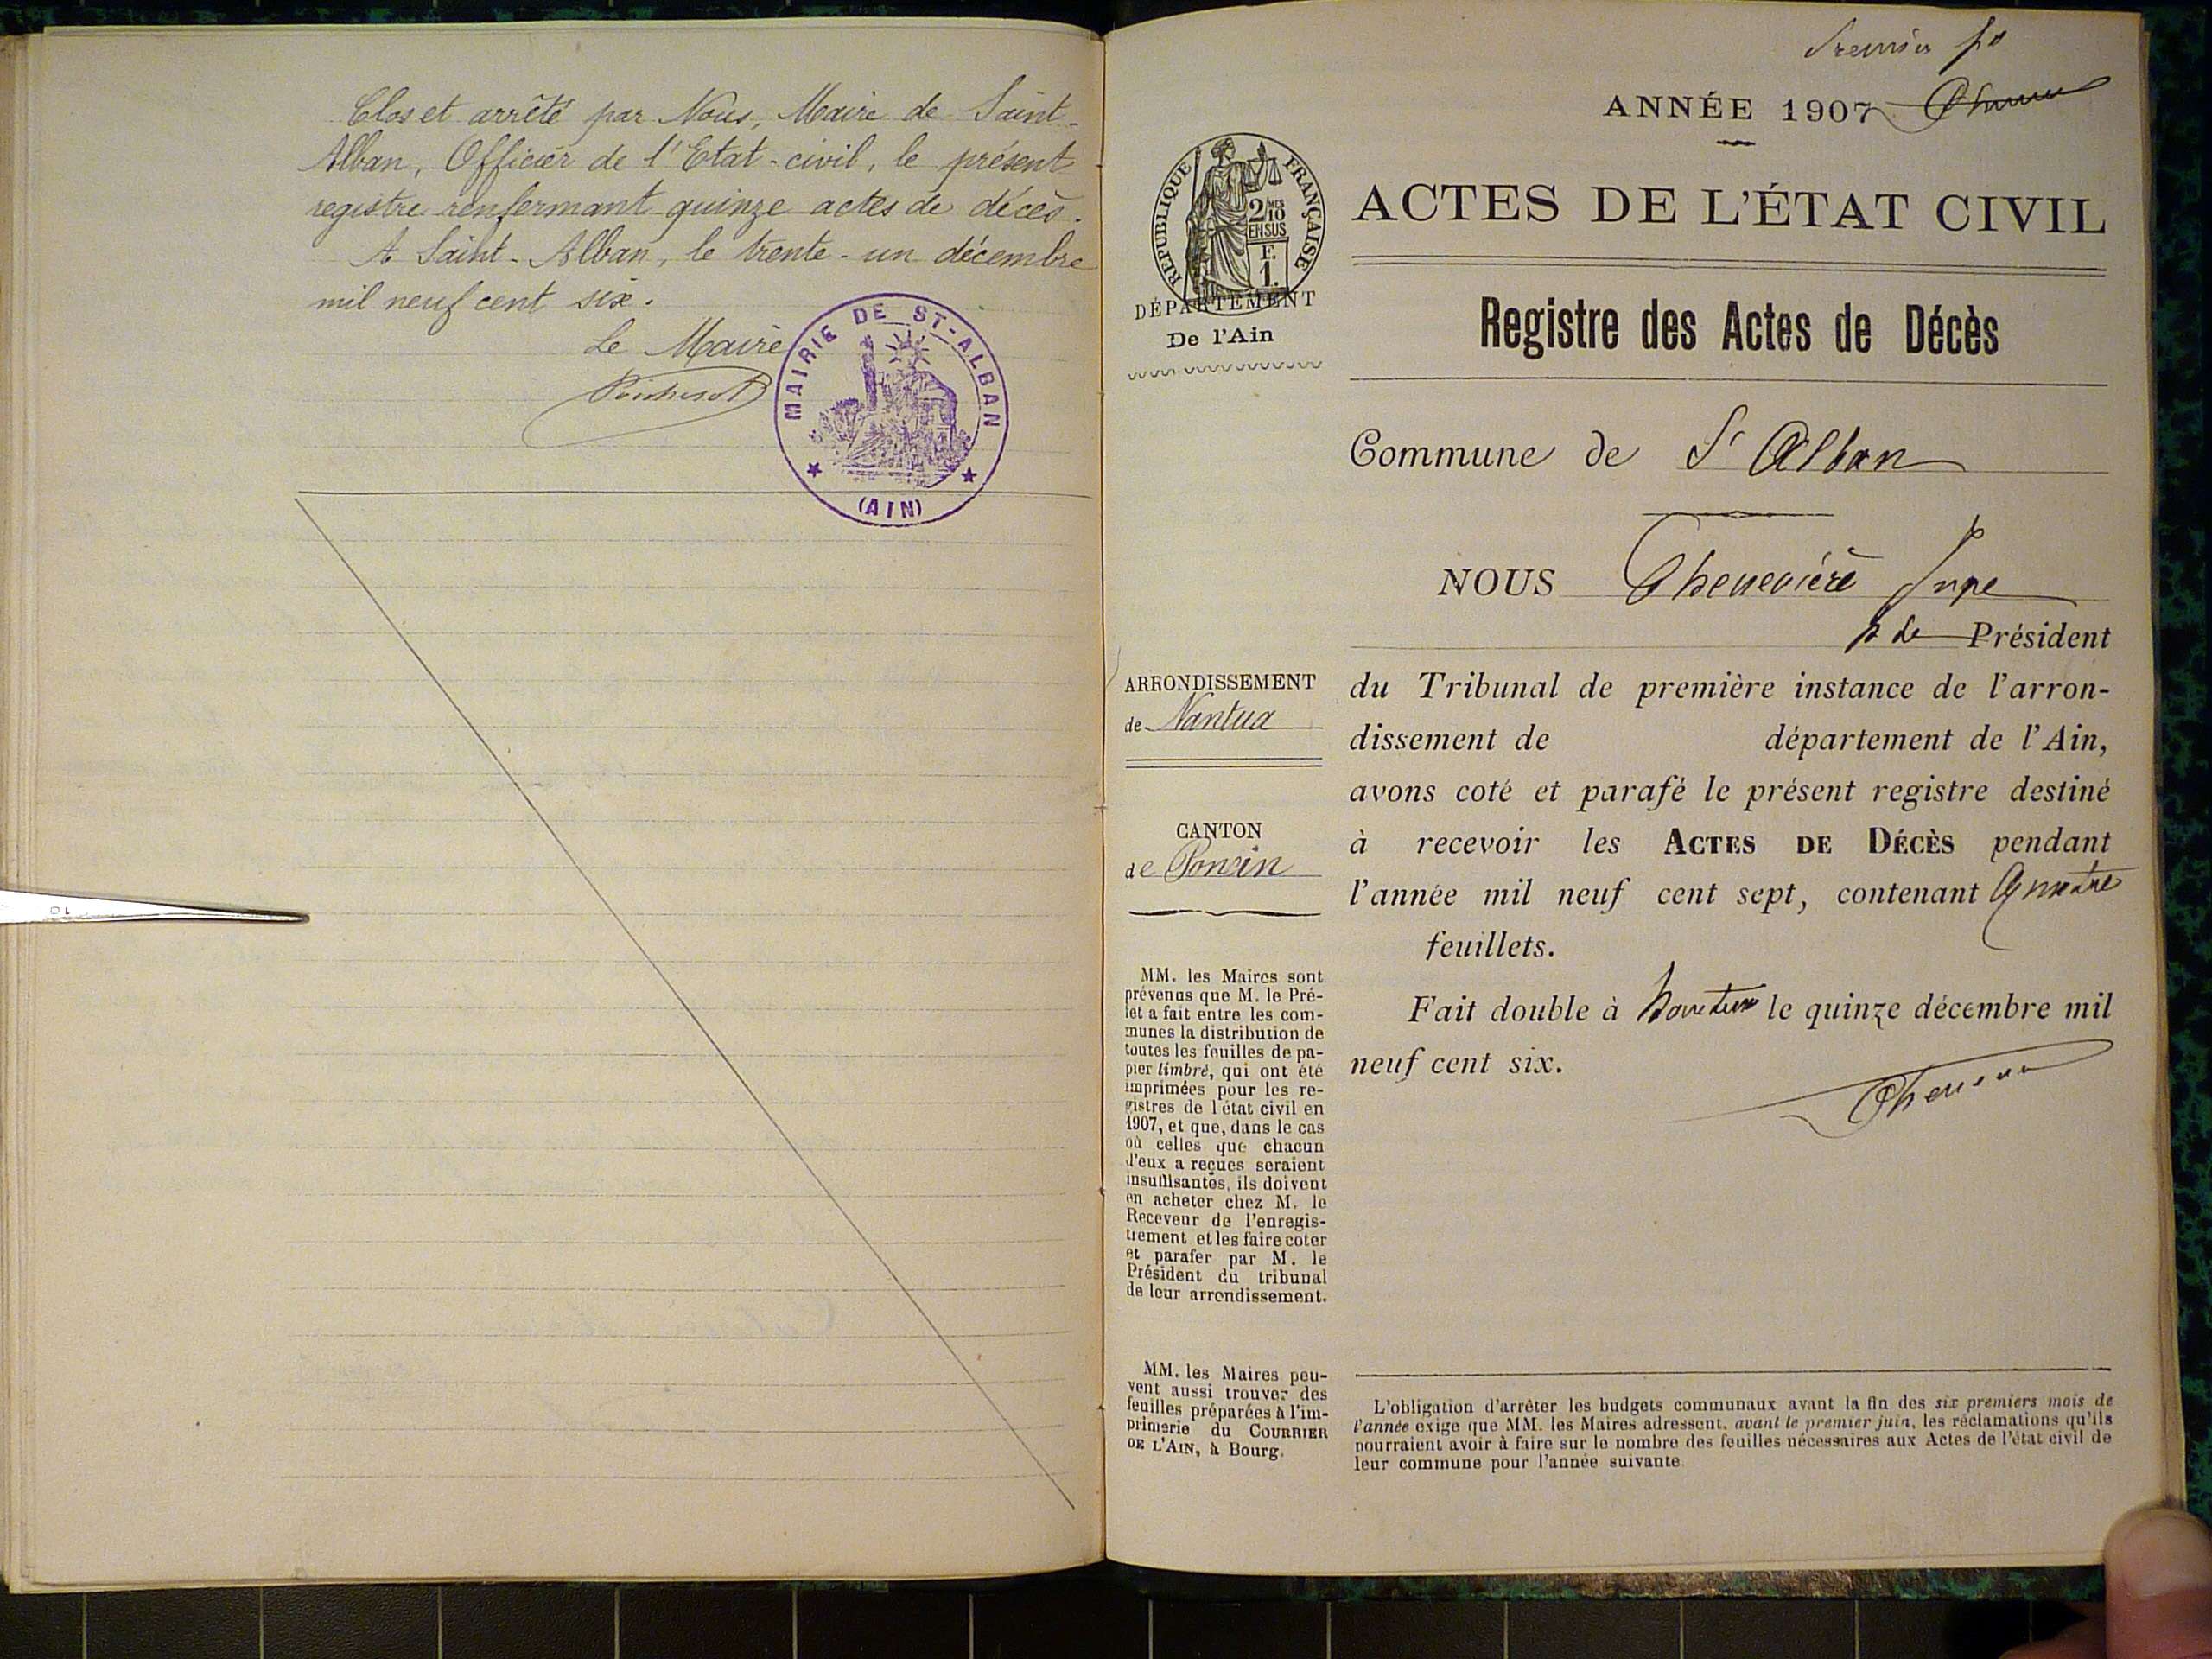 Clos et arrêté par Nous, Maire de Saint-
Alban, Officier de l'Etat-civil, le présent
registre renfermant quinze actes de décès.
A Saint-Alban, le trente-un décembre
mil neuf cent six.
Le Maire
MAIRIE DE ST-ALBAN
(AIN)
Premier fo
ANNÉE 1907
RÉPUBLIQUE FRANÇAISE
2/10 EN SUS
F.
1.
ACTES DE L'ÉTAT CIVIL
DÉPARTEMENT
De l'Ain
Registre des Actes de Décès
Commune de St Alban
NOUS Thenevière Juge
p le Président
ARRONDISSEMENT
de Nantua
du Tribunal de première instance de l'arron-
dissement de département de l'Ain,
avons coté et parafé le présent registre destiné
à recevoir les ACTES DE DÉCÈS pendant
l'année mil neuf cent sept, contenant Quatre
feuillets.
Fait double à Nantua le quinze décembre mil
neuf cent six.
CANTON
de Poncin
MM. les Maires sont
prévenus que M. le Pré-
fet a fait entre les com-
munes la distribution de
toutes les feuilles de pa-
pier timbré, qui ont été
imprimées pour les re-
gistres de l'état civil en
1907, et que, dans le cas
où celles que chacun
d'eux a reçues seraient
insuffisantes, ils doivent
en acheter chez M. le
Receveur de l'enregis-
trement et les faire coter
et parafer par M. le
Président du tribunal
de leur arrondissement.
MM. les Maires peu-
vent aussi trouver des
feuilles préparées à l'im-
primerie du COURRIER
DE L'AIN, à Bourg.
L'obligation d'arrêter les budgets communaux avant la fin des six premiers mois de
l'année exige que MM. les Maires adressent, avant le premier juin, les réclamations qu'ils
pourraient avoir à faire sur le nombre des feuilles nécessaires aux Actes de l'état civil de
leur commune pour l'année suivante.